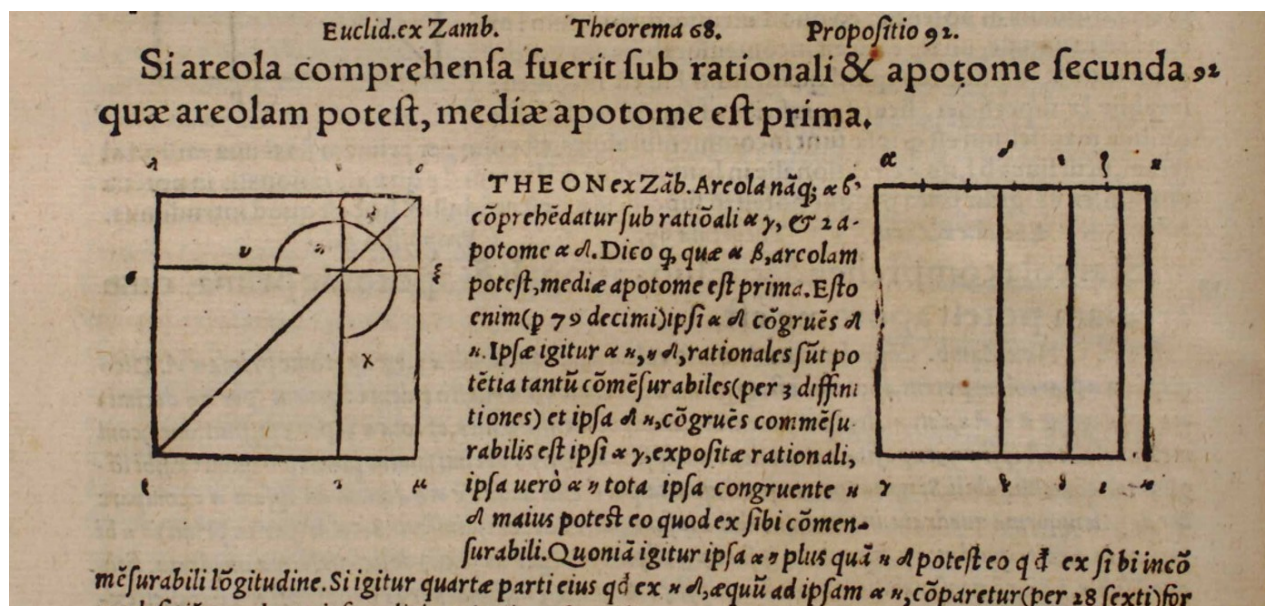 Euclid.ex Zamb. Theorema 68. Propoſitio 92.
Si areola comprehenſa fuerit ſub rationali & apotome ſecunda 92
quæ areolam poteſt, mediæ apotome eſt prima.
THEON ex Zāb. Areola nāq; α β
cōprehēdatur ſub ratiōali α γ, & 2 a-
potome α δ. Dico q, quæ α β, areolam
poteſt, mediæ apotome eſt prima. Eſto
enim (p 79 decimi) ipſi α δ cōgruēs δ
η. Ipſæ igitur α η, η δ, rationales ſūt po
tētia tantū cōmēſurabiles (per 3 diffini
tiones) et ipſa δ η, cōgruēs commēſu
rabilis eſt ipſi α γ, expoſitæ rationali,
ipſa uerò α η tota ipſa congruente η
δ maius poteſt eo quod ex ſibi cōmen-
ſurabili. Quoniā igitur ipſa α η plus quā η δ poteſt eo qđ ex ſibi incō
mēſurabili lōgitudine. Si igitur quartæ parti eius qđ ex η δ, æquū ad ipſam α η, cōparetur (per 28 ſexti) for